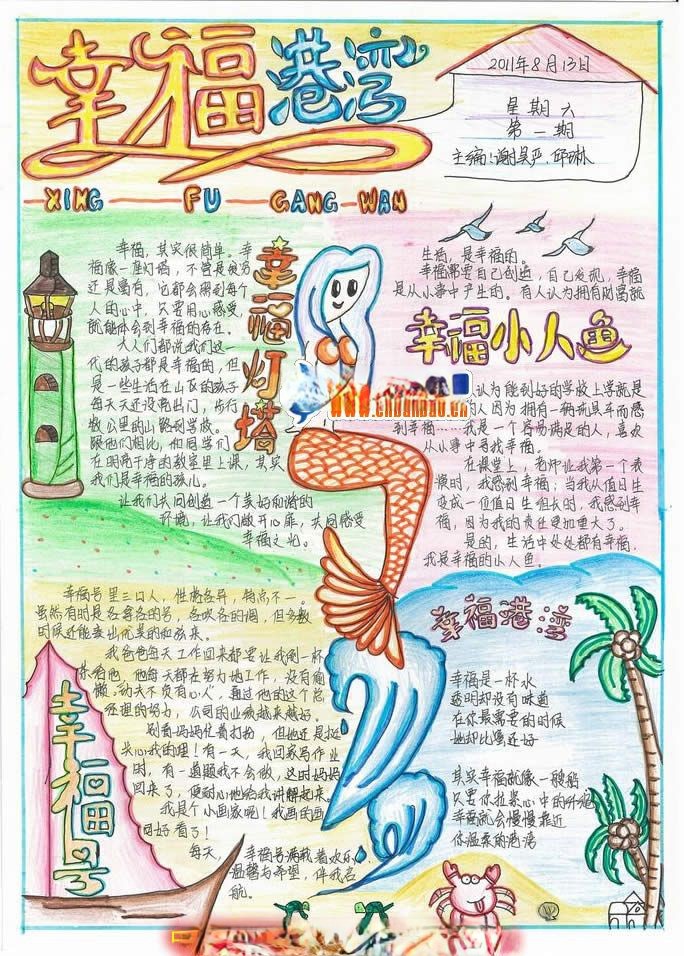 幸福港湾
XING FU GANG WAN
2011年8月13日
星期六
第一期
主编:谢昊严、邱琳
幸福灯塔
幸福，其实很简单。幸
福像一座灯塔，不管是贫穷
还是富有，它都会照到每个
人的心中，只要用心感受，
就能体会到幸福的存在。
大人们都说我们这一
代的孩子都是幸福的，但
是一些生活在山区的孩子
每天天还没亮出门，步行
数公里的山路到学校。
跟他们相比，和同学们
在明亮干净的教室里上课，其实
我们是幸福的孩儿。
让我们共同创造一个美好和谐的
环境，让我们敞开心扉，共同感受
幸福之光。
生活，是幸福的。
幸福需要自己创造，自己发现，幸福
是从小事中产生的。有人认为拥有财富就
幸福小人鱼
认为能到好的学校上学就是
的人因为拥有一辆玩具车而感
到幸福……我是一个容易满足的人，喜欢
从小事中寻找幸福。
在课堂上，老师让我第一个表
演时，我感到幸福；当我从值日生
变成一位值日生组长时，我感到幸
福，因为我的责任更加重大了。
是的，生活中处处都有幸福，
我是幸福的小人鱼。
幸福号
幸福号里三口人，性格各异，特点不一。
虽然有时是各客各的号，各吹各的调，但多数
时候还能奏出优美的和弦来。
我爸爸每天工作回来都要让我倒一杯
茶给他，他每天都在努力地工作，没有偷
懒，功夫不负有心人，通过他的这个总
经理的努力，公司的业绩越来越好。
别看妈妈忙着打扮，但她还是挺
关心我的哩！有一天，我回家写作业
时，有一道题我不会做，这时妈妈
回来了，便耐心地给我讲解起来。
我是个小画家呢！我画的画
可好看了！
每天，幸福号满载着欢乐、
温馨与希望，伴我启
航。
幸福港湾
幸福是一杯水
透明却没有味道
在你最需要的时候
她却比蜜还好
其实幸福就像一艘船
只要你拉紧心中的纤绳
幸福就会慢慢靠近
你温柔的港湾